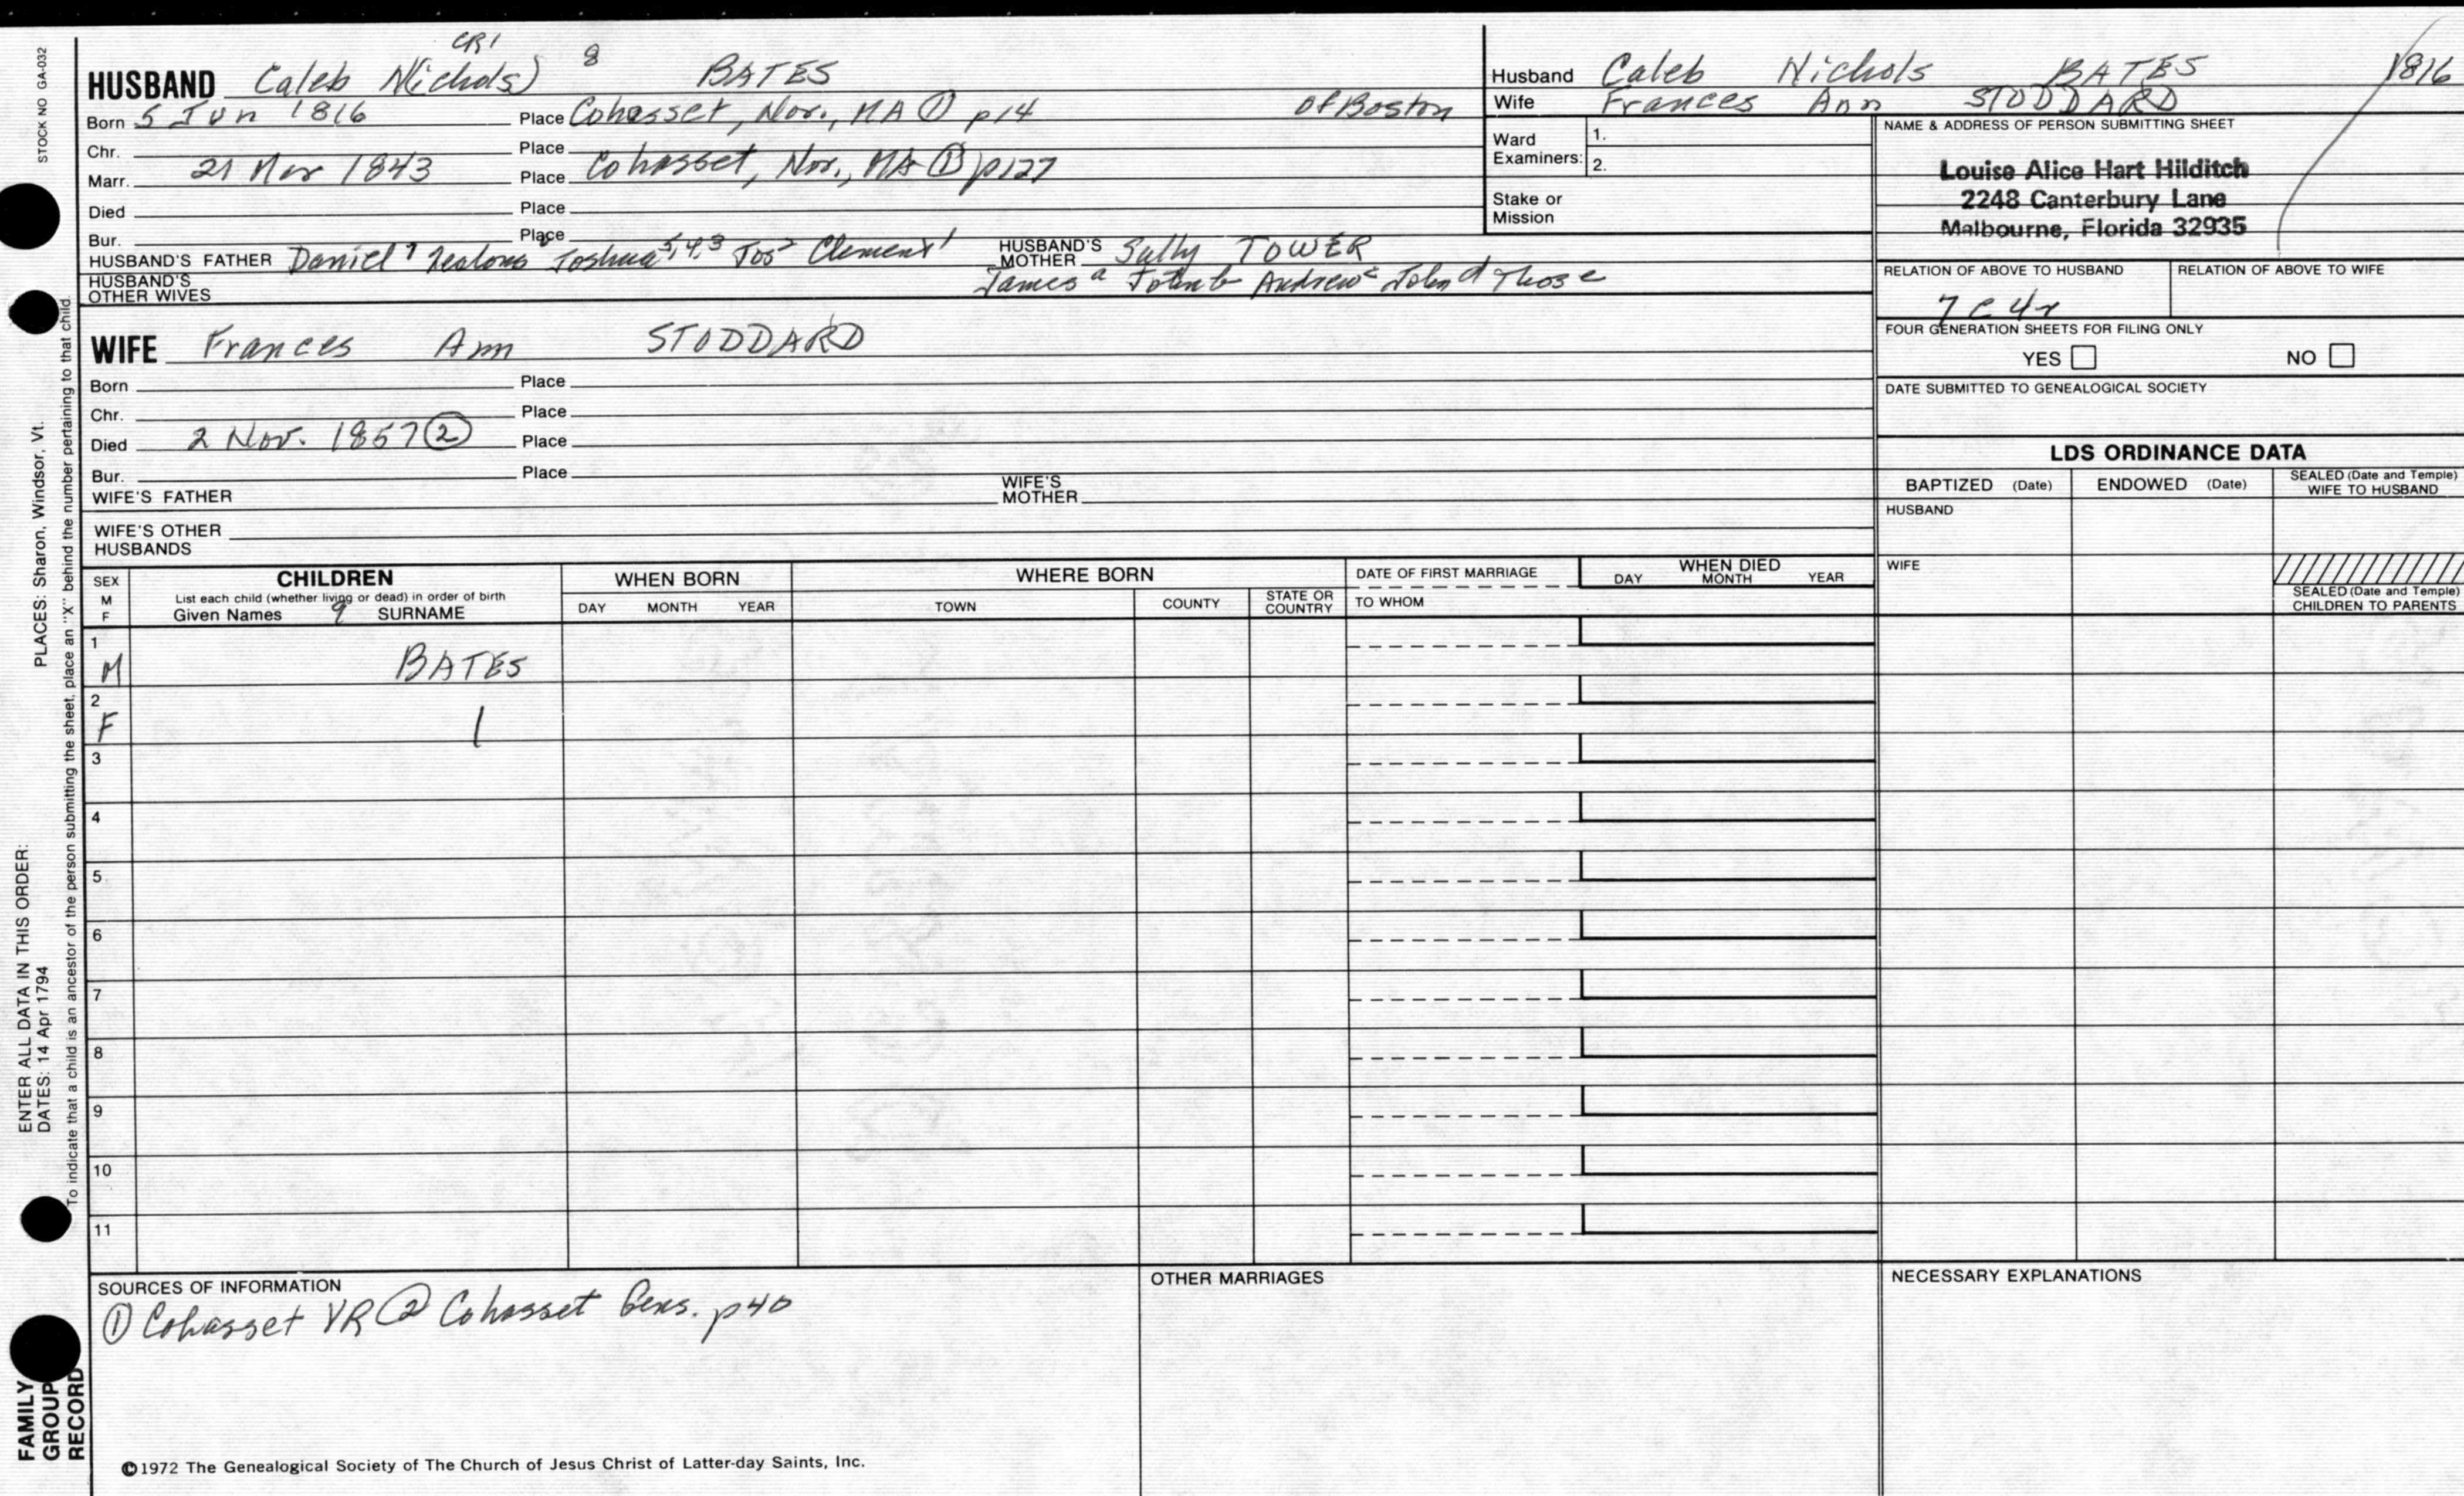 STOCK NO GA-032
CR1
HUSBAND Caleb N(ichols) 8 BATES
Born 5 Jun 1816 Place Cohasset, Nor., MA ① p14 of Boston
Chr. Place
Marr. 21 Nov 1843 Place Cohasset, Nor., MA ① p127
Died Place
Bur. Place
HUSBAND'S FATHER Daniel 7 Zealous 6 Joshua 5,4,3 Jos 2 Clement 1 HUSBAND'S MOTHER Sally TOWER
HUSBAND'S OTHER WIVES James a John b Andrew c John d Thos e
Husband Caleb Nichols BATES 1816
Wife Frances Ann STODDARD
Ward Examiners: 1.
2.
Stake or Mission
NAME & ADDRESS OF PERSON SUBMITTING SHEET
Louise Alice Hart Hilditch
2248 Canterbury Lane
Melbourne, Florida 32935
RELATION OF ABOVE TO HUSBAND RELATION OF ABOVE TO WIFE
7C4r
FOUR GENERATION SHEETS FOR FILING ONLY
YES NO
DATE SUBMITTED TO GENEALOGICAL SOCIETY
WIFE Frances Ann STODDARD
Born Place
Chr. Place
Died 2 Nov. 1857 ② Place
Bur. Place
WIFE'S FATHER WIFE'S MOTHER
WIFE'S OTHER HUSBANDS
LDS ORDINANCE DATA
BAPTIZED (Date) ENDOWED (Date) SEALED (Date and Temple) WIFE TO HUSBAND
HUSBAND
WIFE
SEALED (Date and Temple) CHILDREN TO PARENTS
SEX M F
CHILDREN
List each child (whether living or dead) in order of birth
Given Names 9 SURNAME
WHEN BORN
DAY MONTH YEAR
WHERE BORN
TOWN COUNTY STATE OR COUNTRY
DATE OF FIRST MARRIAGE
TO WHOM
WHEN DIED
DAY MONTH YEAR
1
M BATES
2
F |
3
4
5
6
7
8
9
10
11
SOURCES OF INFORMATION
① Cohasset VR ② Cohasset Gens. p40
OTHER MARRIAGES
NECESSARY EXPLANATIONS
©1972 The Genealogical Society of The Church of Jesus Christ of Latter-day Saints, Inc.
PLACES: Sharon, Windsor, Vt.
ENTER ALL DATA IN THIS ORDER:
DATES: 14 Apr 1794
To indicate that a child is an ancestor of the person submitting the sheet, place an "X" behind the number pertaining to that child.
FAMILY GROUP RECORD